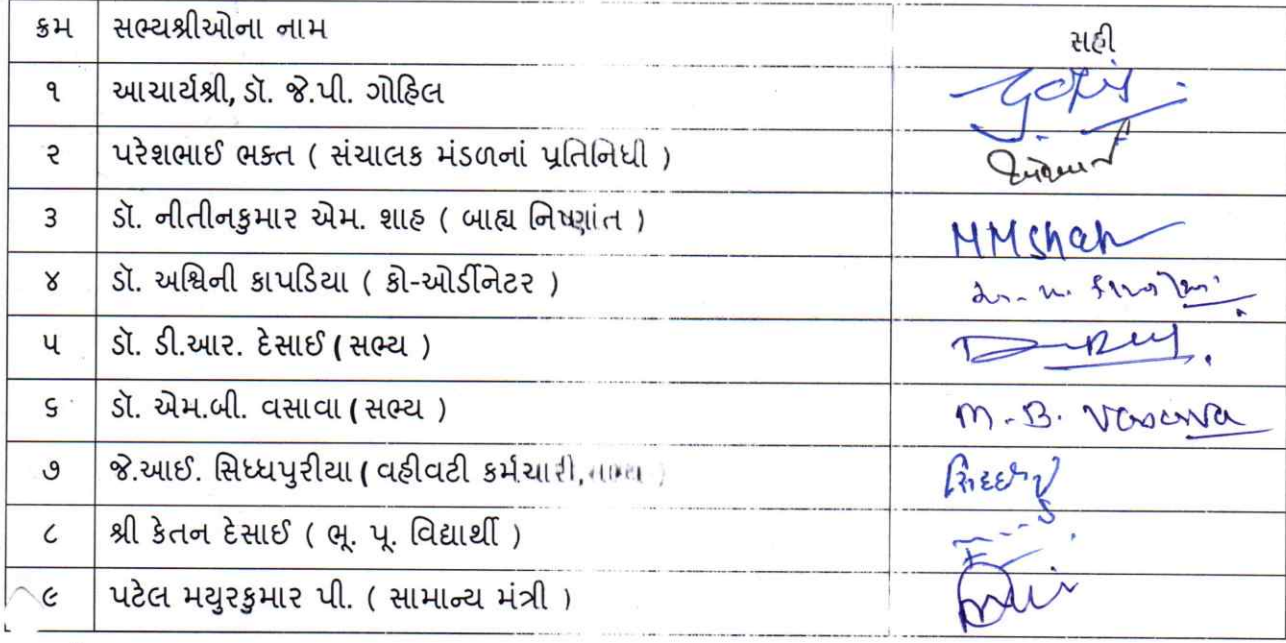 ક્રમ સભ્યશ્રીઓના નામ સહી
૧ આચાર્યશ્રી, ડૉ. જે.પી. ગોહિલ
૨ પરેશભાઈ ભક્ત ( સંચાલક મંડળનાં પ્રતિનિધી )
૩ ડૉ. નીતીનકુમાર એમ. શાહ ( બાહ્ય નિષ્ણાંત ) MMShah
૪ ડૉ. અશ્વિની કાપડિયા ( કો-ઓર્ડીનેટર )
૫ ડૉ. ડી.આર. દેસાઈ ( સભ્ય )
૬ ડૉ. એમ.બી. વસાવા ( સભ્ય ) M.B. Vasava
૭ જે.આઈ. સિધ્ધપુરીયા ( વહીવટી કર્મચારી,
૮ શ્રી કેતન દેસાઈ ( ભૂ. પૂ. વિદ્યાર્થી )
૯ પટેલ મયુરકુમાર પી. ( સામાન્ય મંત્રી )